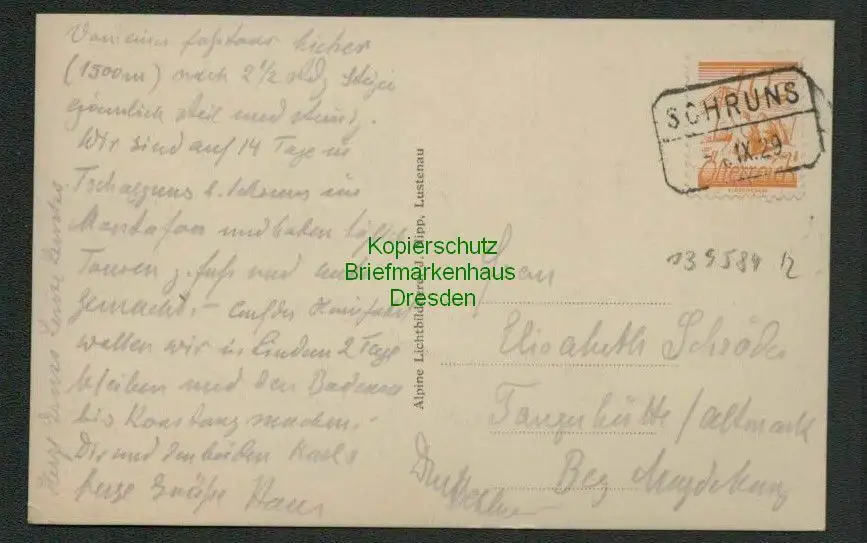 Von einer
(1500m) nach 2½
ziemlich steil und
Wir sind auf 14 Tage in
Tschagguns b. Schruns im
Montafon und haben
Touren z. Fuß und
gemacht. – Auf der Heimfahrt
wollen wir in Lindau 2 Tage
bleiben und den Bodensee
bis Konstanz machen. –
Dir und den beiden
herzl. Grüße Hans
SCHRUNS
IX.29
Österreich
139584 12
Alpine Lichtbildnerei J. Hipp, Lustenau
Frau
Elisabeth Schröder
Tangerhütte / Altmark
Bez Magdeburg
Kopierschutz
Briefmarkenhaus
Dresden